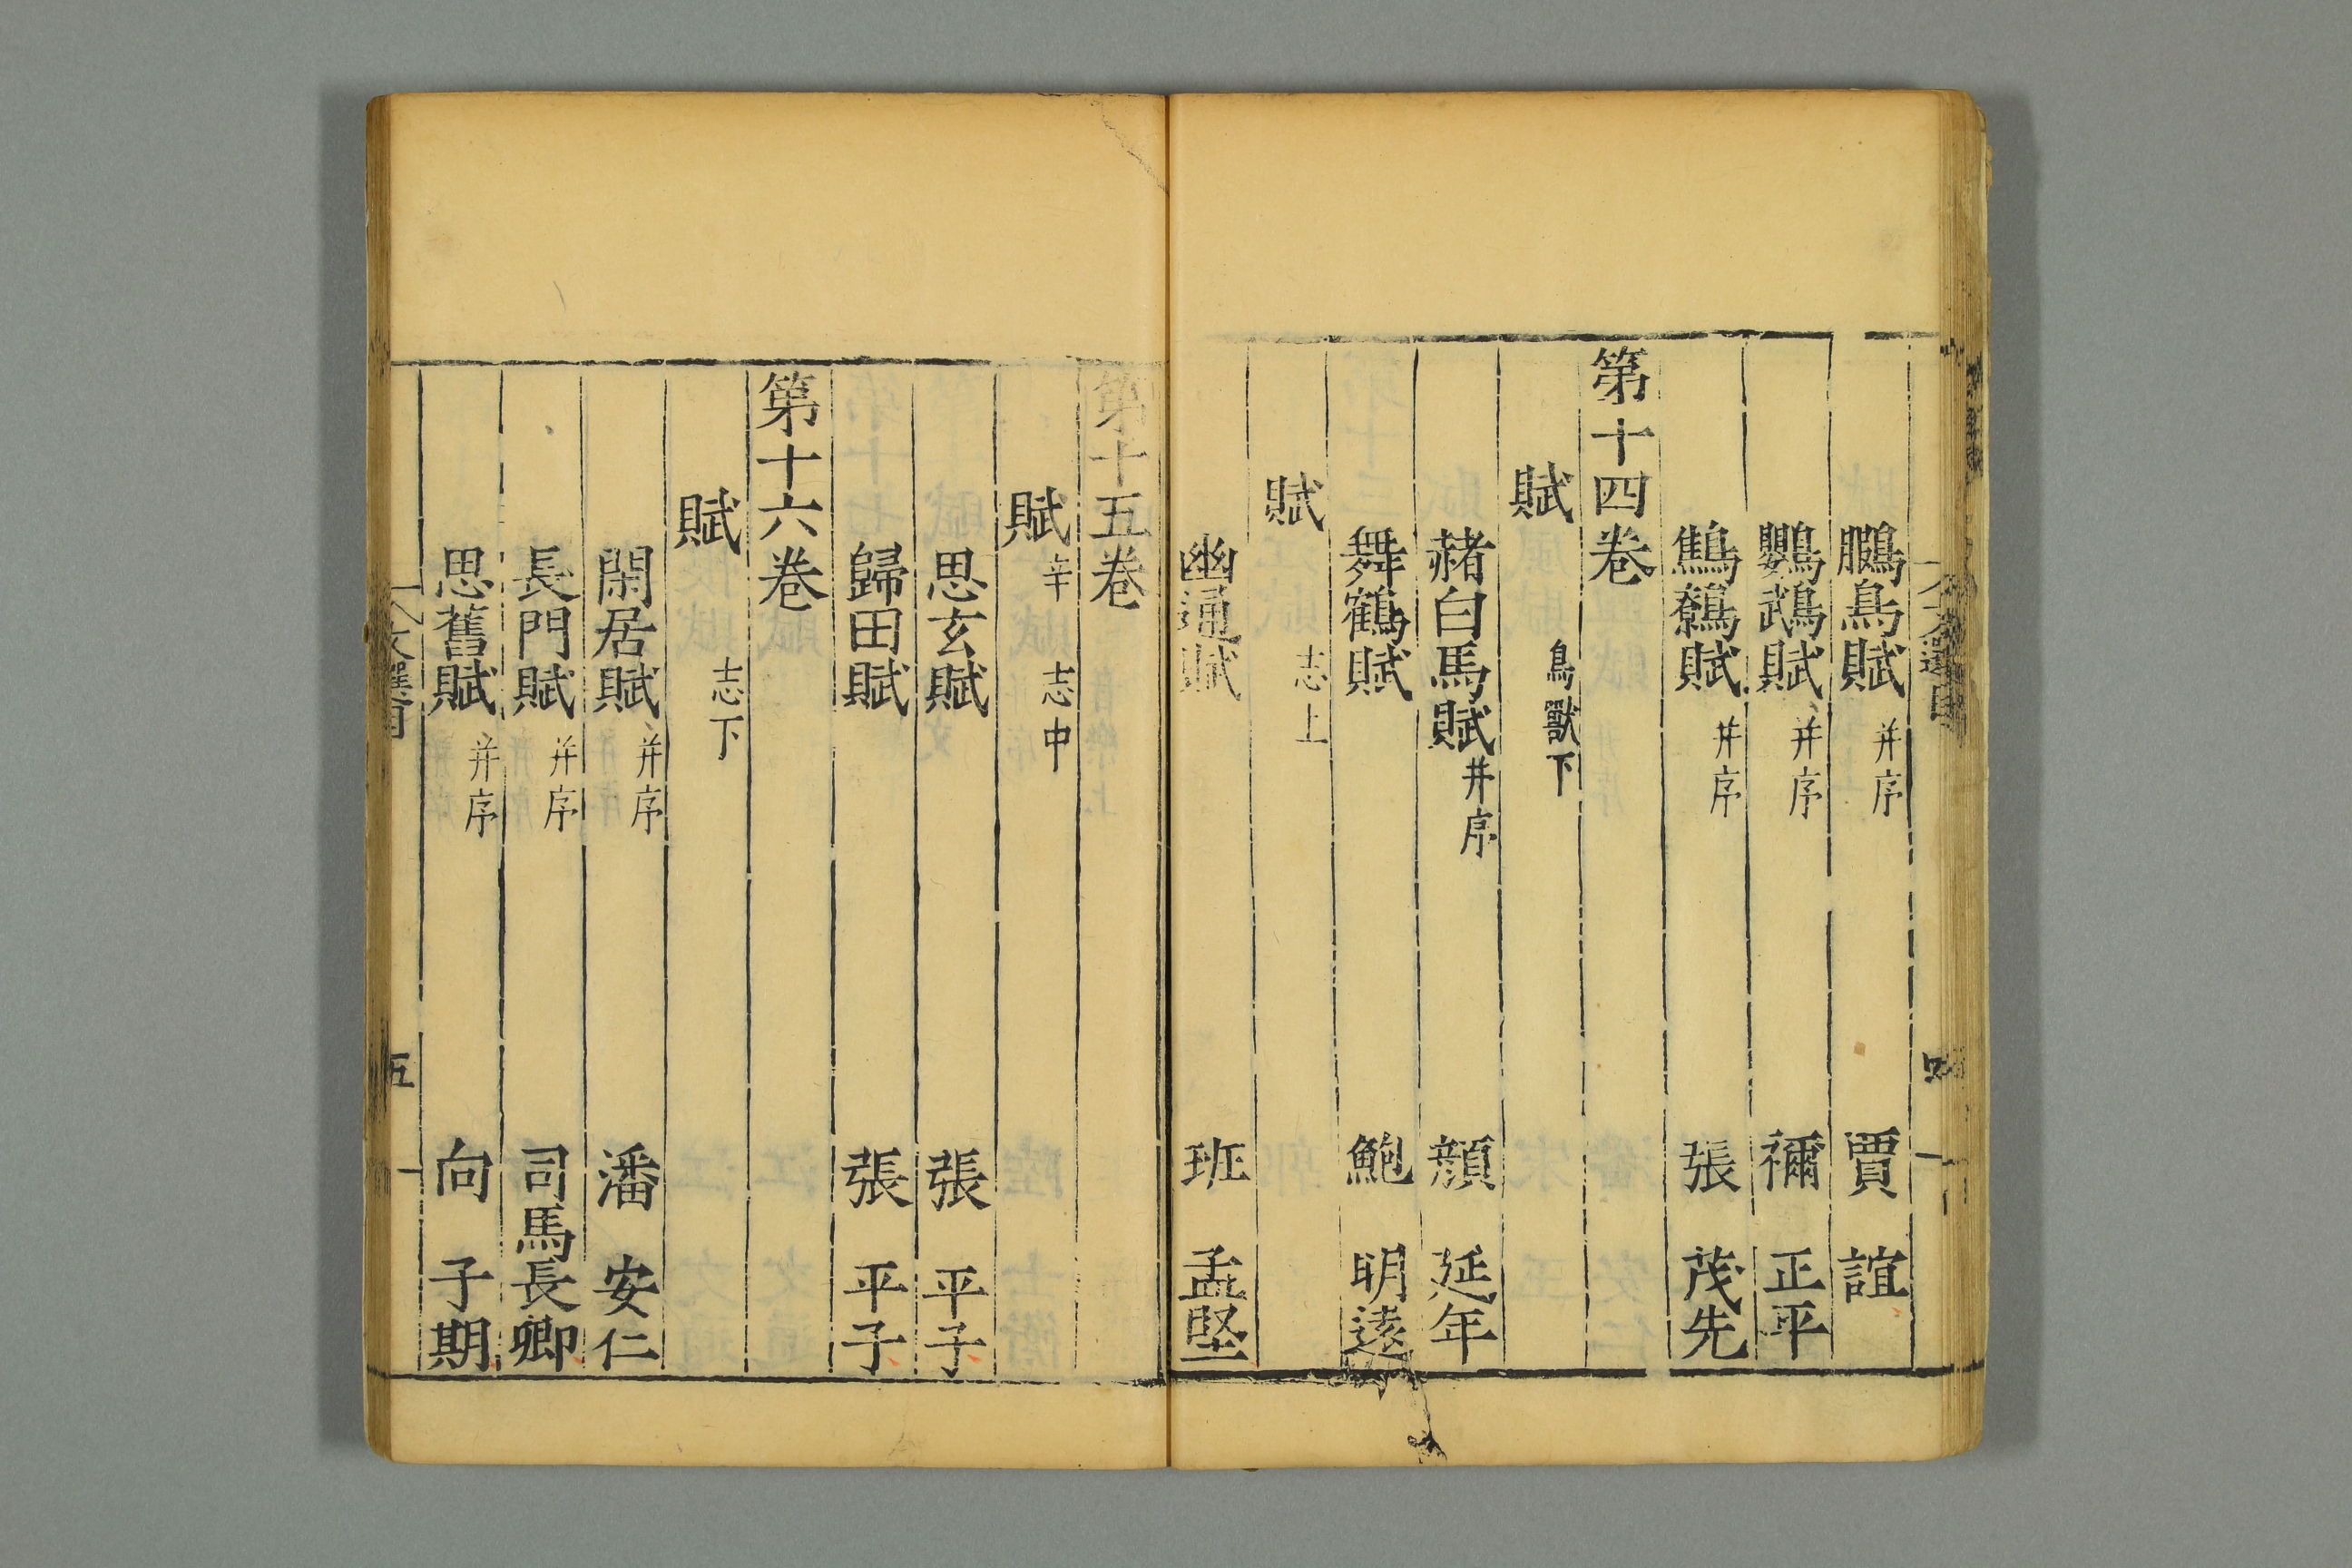 鵩鳥賦 并序 賈 誼
鸚鵡賦 并序 禰 正平
鷦鷯賦 并序 張 茂先
第十四卷
賦 鳥獸下
赭白馬賦 并序 顔 延年
舞鶴賦 鮑 明遠
賦 志上
幽通賦 班 孟堅
第十五卷
賦 辛 志中
思玄賦 張 平子
歸田賦 張 平子
第十六卷
賦 志下
閑居賦 并序 潘 安仁
長門賦 并序 司馬長卿
思舊賦 并序 向 子期
文選目
五